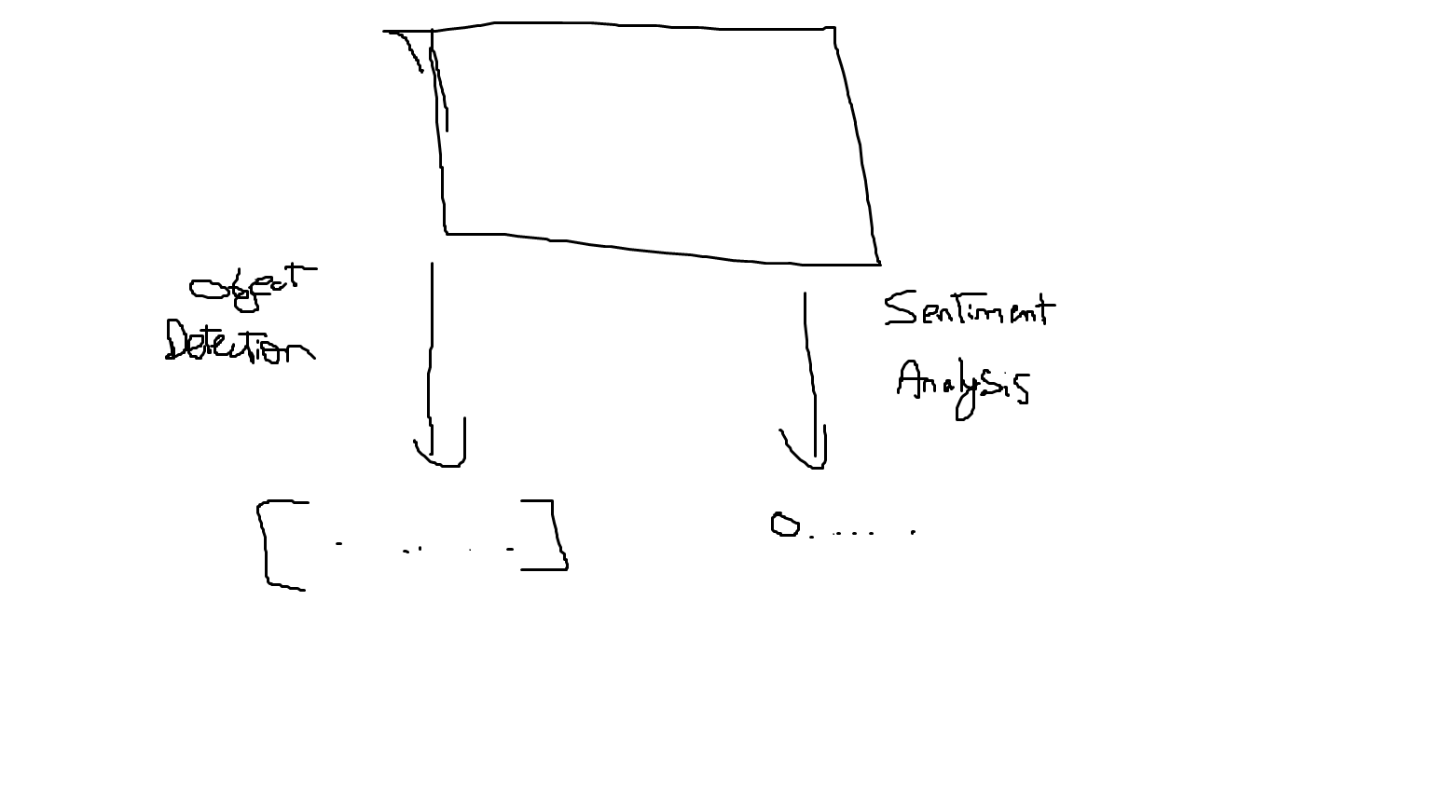 Object
Detection
Sentiment
Analysis
[ . .. . . ]
0......